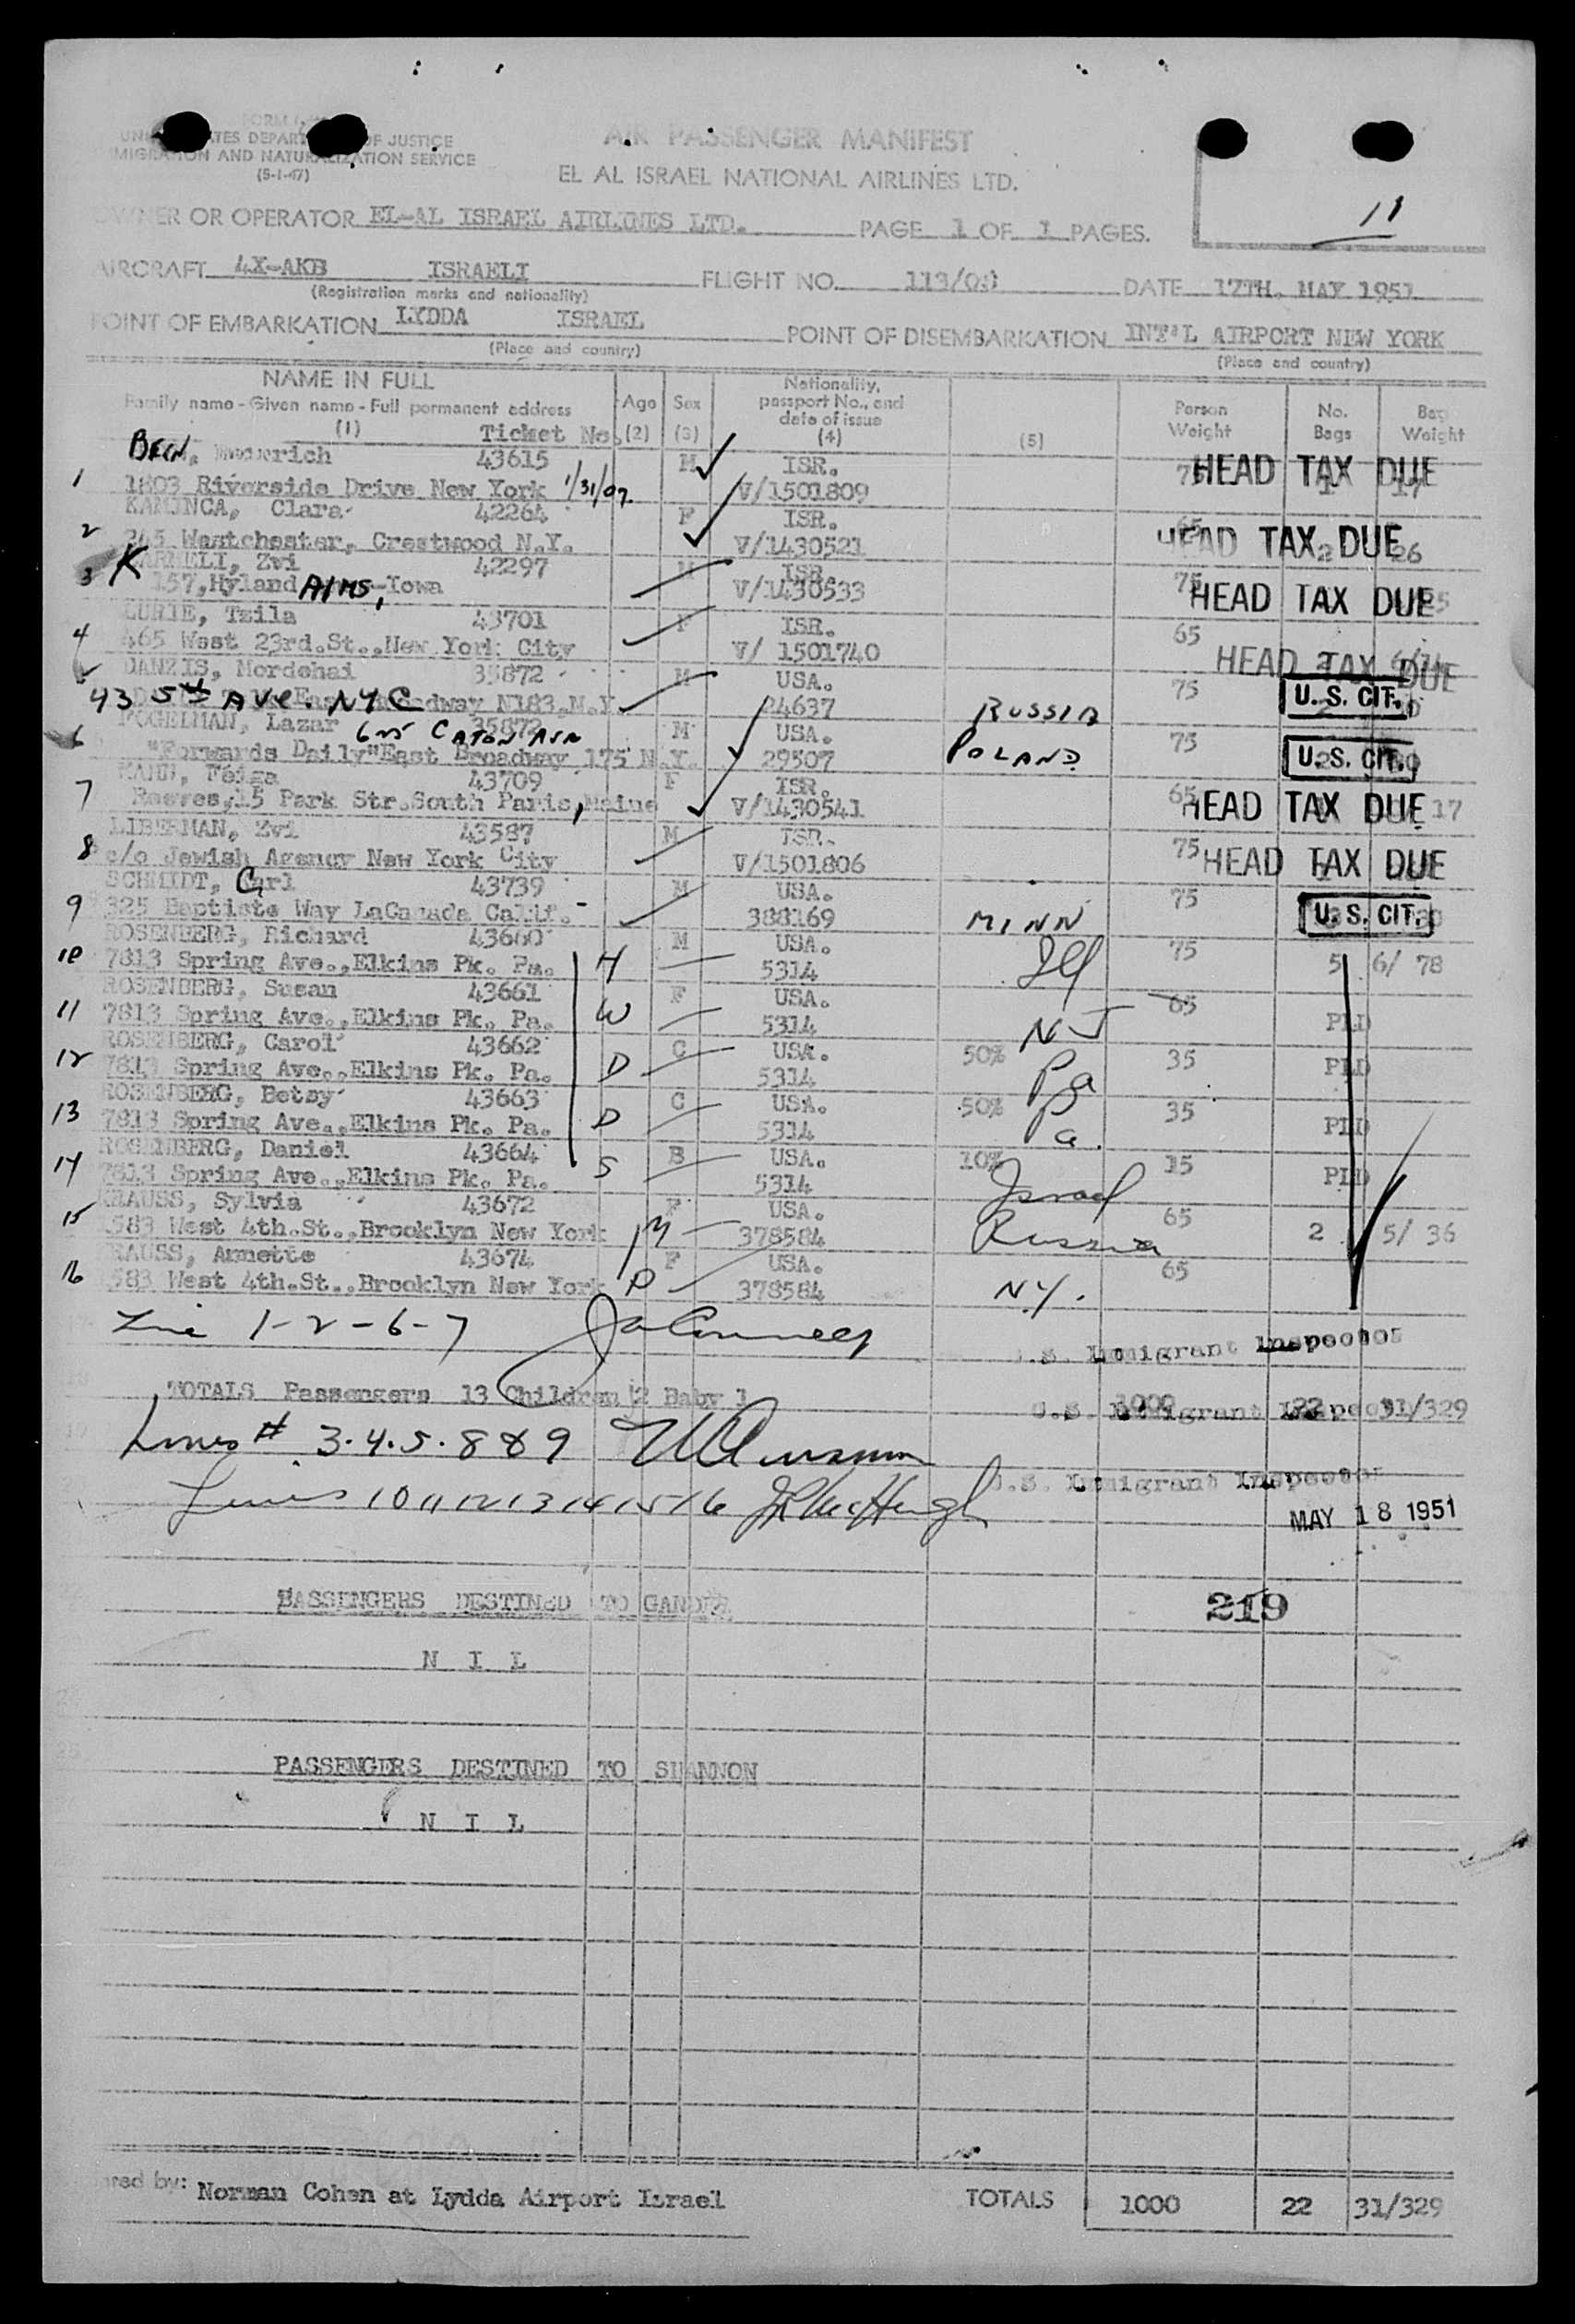 FORM I
OF JUSTICE
AND NATURALIZATION SERVICE
(5-1-47)
AIR PASSENGER MANIFEST
EL AL ISRAEL NATIONAL AIRLINES LTD.
11
OWNER OR OPERATOR EL-AL ISRAEL AIRLINES LTD. PAGE 1 OF 1 PAGES.
AIRCRAFT 4X-AKB ISRAELI FLIGHT NO. 113/ DATE 17TH. MAY 1951
(Registration marks and nationality)
POINT OF EMBARKATION LYDDA ISRAEL POINT OF DISEMBARKATION INT'L AIRPORT NEW YORK
(Place and country) (Place and country)
NAME IN FULL Age Sex Nationality, passport No., and date of issue Person Weight No. Bags Bag Weight
Family name - Given name - Full permanent address
(1) Ticket No. (2) (3) (4) (5)
43615 M ISR. 75 HEAD TAX DUE
1 1803 Riverside Drive New York 1/31/07 V/1501809 17
KAMINCA, Clara 42264 F ISR. 65
2 Westchester, Crestwood N.Y. V/1430521 HEAD TAX DUE 2 26
K ARMELI, Zvi 42297 M ISR. 75
3 157, Hyland AIMS, Iowa V/1430533 HEAD TAX DUE
LURIE, Tzila 43701 F ISR. 65
4 465 West 23rd.St.,New York City V/ 1501740 HEAD TAX DUE
DANZIS, Mordehai 35872 M USA. 75 U.S. CIT.
43 5th AVE. NYC East Broadway N183.N.Y. 24637 RUSSIA
FOGELMAN, Lazar 35873 M USA. 75
6 605 CATON AVE
"Forwards Daily"East Broadway 175 N.Y. 29507 POLAND U.S. CIT.
KAHN, Feiga 43709 F ISR. 65
7 Reeves,15 Park Str.South Paris, Maine V/1430541 HEAD TAX DUE 17
LIBERMAN, Zvi 43587 M ISR. 75
8 c/o Jewish Agency New York City V/1501806 HEAD TAX DUE
SCHMIDT, Carl 43739 M USA. 75
9 325 Baptiste Way LaCanada Calif. 388169 MINN U.S. CIT.
ROSENBERG, Richard 43660 M USA. 75
10 7813 Spring Ave.,Elkins Pk. Pa. H 5314 Ill 5 6/ 78
ROSENBERG, Susan 43661 F USA. 65
11 7813 Spring Ave.,Elkins Pk. Pa. W 5314 NJ PLD
ROSENBERG, Carol 43662 C USA. 50% 35
12 7813 Spring Ave.,Elkins Pk. Pa. D 5314 Pa PLD
ROSENBERG, Betsy 43663 C USA. 50% 35
13 7813 Spring Ave.,Elkins Pk. Pa. D 5314 Pa. PLD
ROSENBERG, Daniel 43664 B USA. 10% 15
14 7813 Spring Ave.,Elkins Pk. Pa. S 5314 Israel PLD
KRAUSS, Sylvia 43672 F USA. 65
15 1583 West 4th.St.,Brooklyn New York M 378584 Russia 2 5/ 36
KRAUSS, Annette 43674 F USA. 65
16 1583 West 4th.St.,Brooklyn New York D 378584 N.Y.
Line 1-2-6-7
U.S. Immigrant Inspector
TOTALS Passengers 13 Children 2 Baby 1 1000 22 31/329
U.S. Immigrant Inspector
Lines # 3.4.5.8&9
Lines 10 11 12 13 14 15 16
U.S. Immigrant Inspector
MAY 18 1951
PASSENGERS DESTINED TO GANDER
219
N I L
PASSENGERS DESTINED TO SHANNON
N I L
by: Norman Cohen at Lydda Airport Israel TOTALS 1000 22 31/329